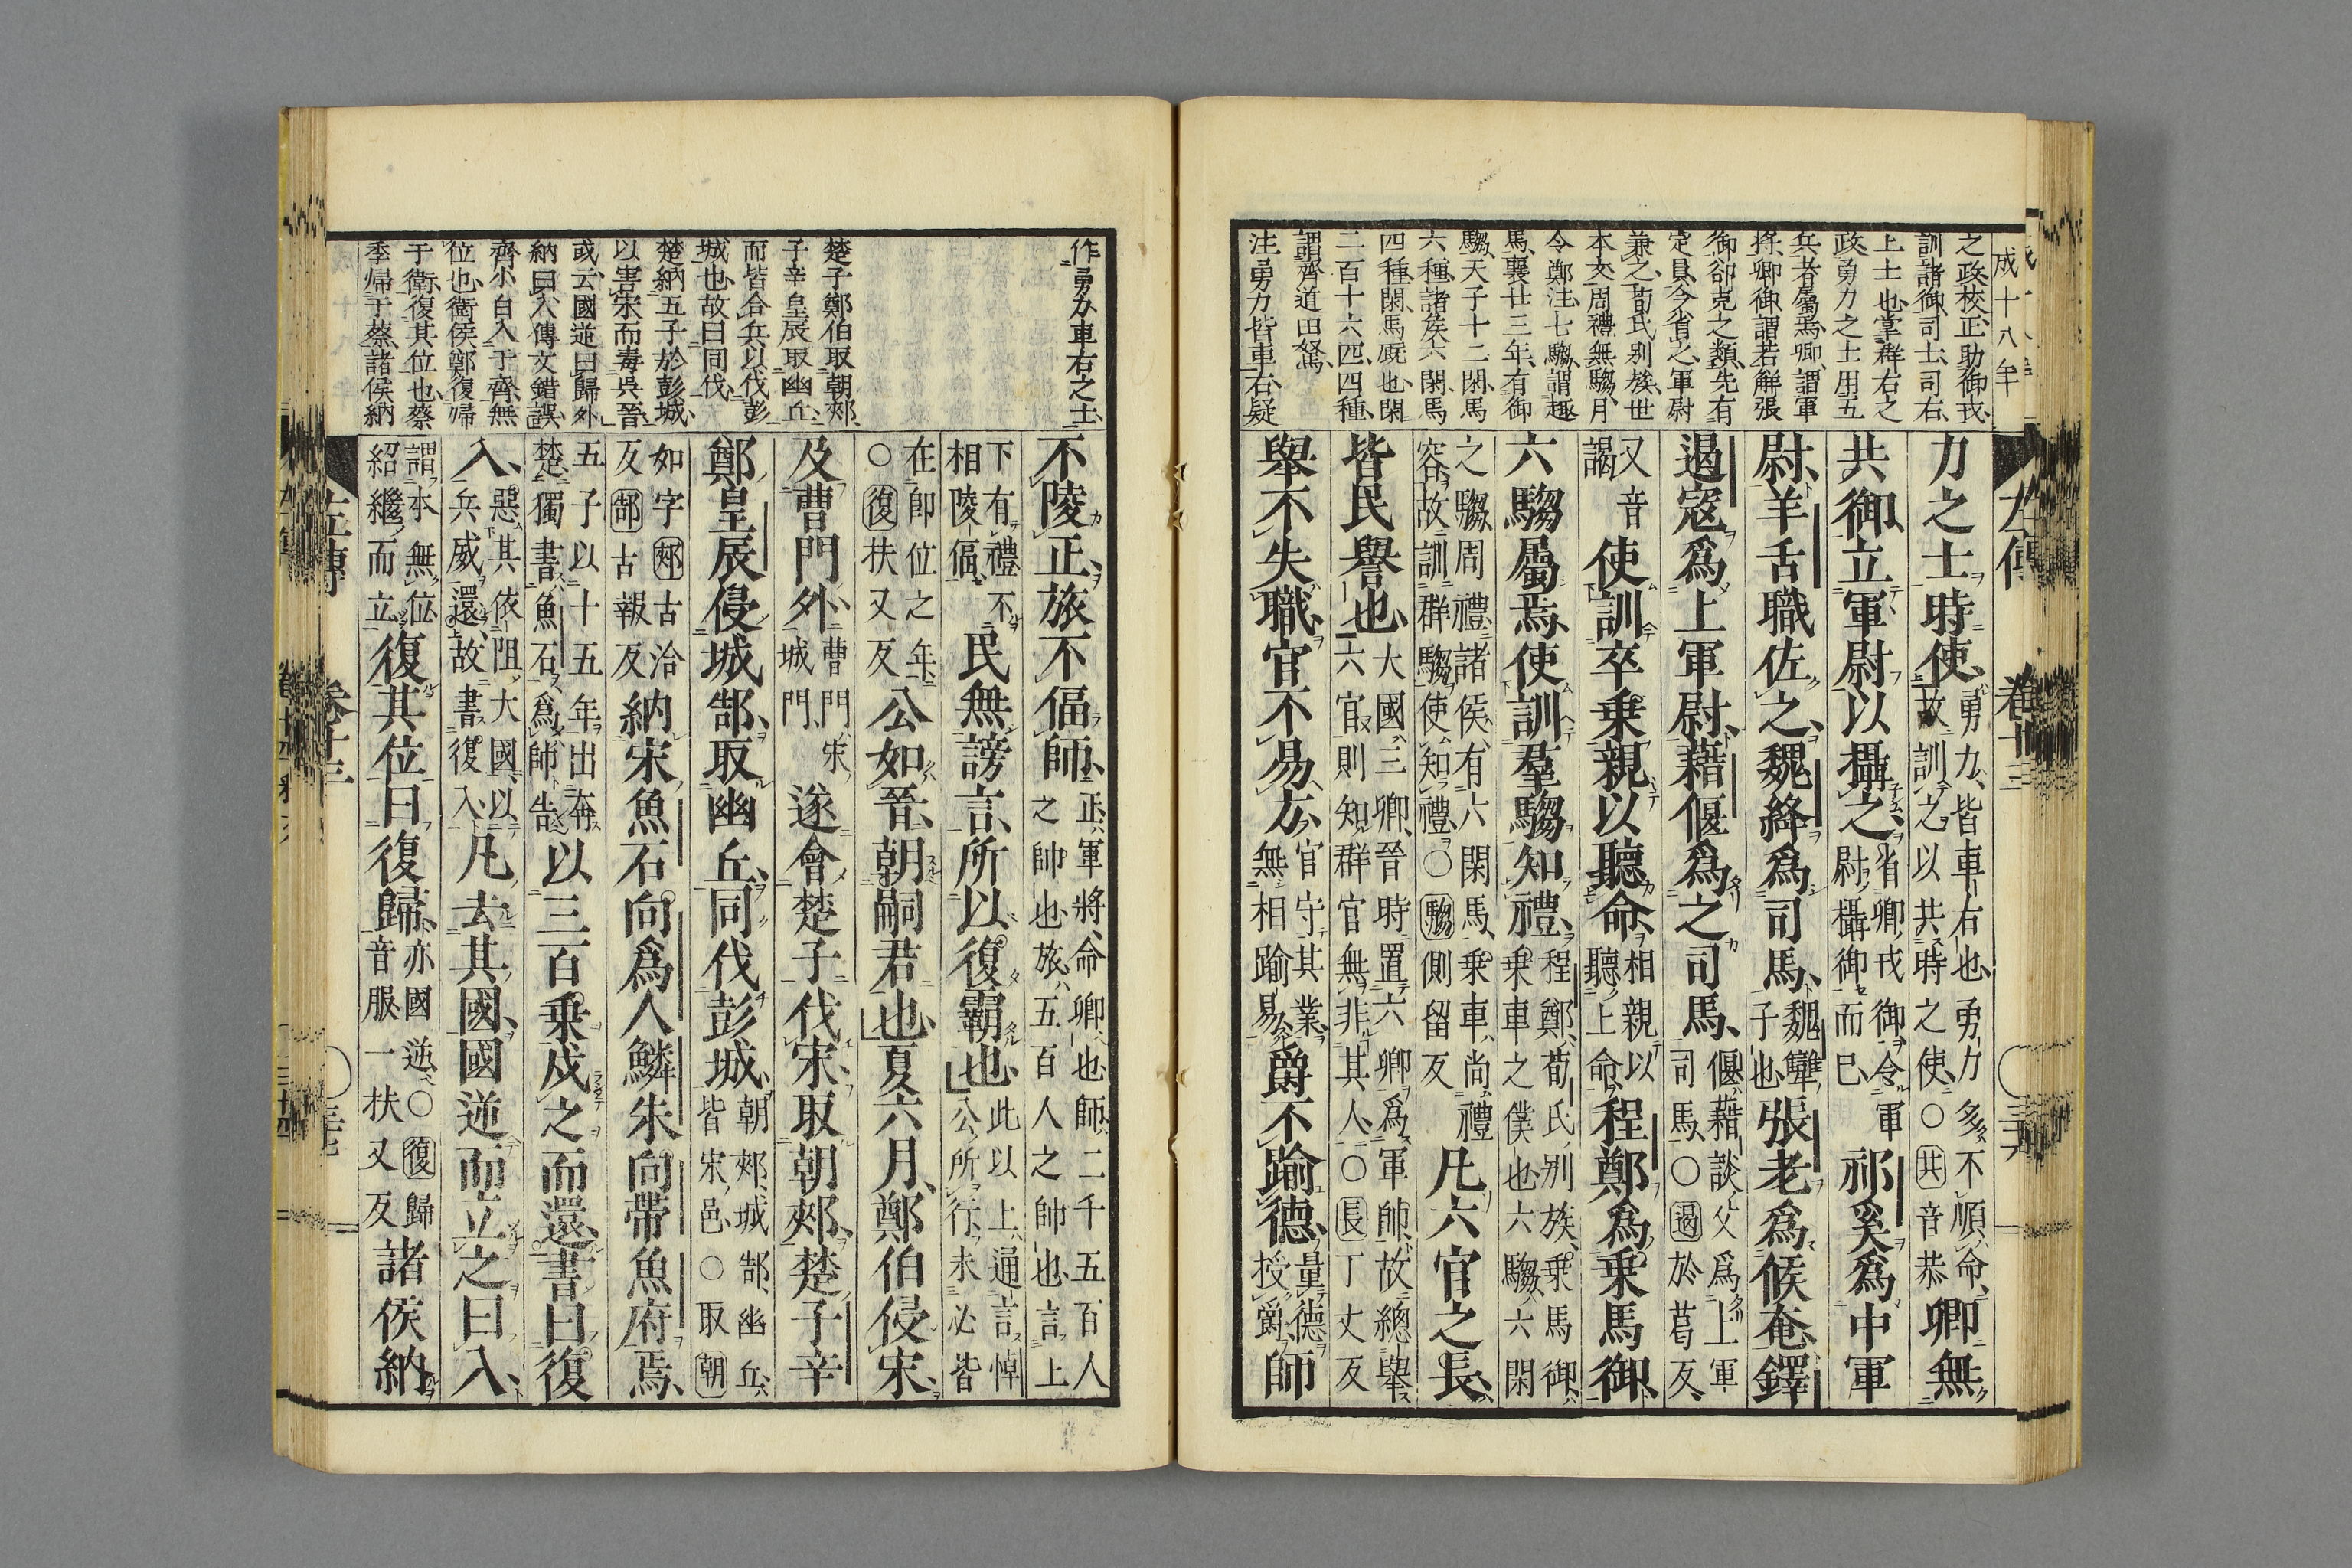 成十八年
之政校正助御戎
訓諸御司士司右
上士也掌群右之
政勇力之士用五
兵者屬焉卿謂軍
將卿御謂若解張
御卻克之類先有
定員今省之軍尉
兼之荀氏別族世
本文周禮無騶月
令鄭注七騶謂趣
馬襄廿三年有御
騶天子十二閑馬
六種諸矦六閑馬
四種閑馬廐也閑
二百十六匹四種
謂齊道田駑
注勇力皆車右疑
力之士時使
勇力皆車右也勇力多不順命
故訓之以共時之使○共音恭
卿無
共御立軍尉以攝之
省卿戎御令軍
尉攝御而巳
祁奚爲中軍
尉羊舌職佐之魏絳爲司馬
魏犨
子也
張老爲候奄鐸
遏寇爲上軍尉藉偃爲之司馬
偃藉談父爲上軍
司馬○遏於葛反
又音
謁
使訓卒乗親以聽命
相親以
聽上命
程鄭爲乗馬御
六騶屬焉使訓羣騶知禮
程鄭荀氏別族乗馬御
乗車之僕也六騶六閑
之騶周禮諸侯有六閑馬乗車尚禮
容故訓群騶使知禮○騶側留反
凡六官之長
皆民譽也
大國三卿晉時置六卿爲軍帥故總舉
六官則知群官無非其人○長丁丈反
舉不失職官不易方
官守其業
無相踰易
爵不踰德
量德
授爵
師
左傳
卷十三
三六
作勇力車右之士
楚子鄭伯取朝郟
子辛皇辰取幽丘
而皆合兵以伐彭
城也故曰同伐
楚納五子於彭城
以害宋而毒吳晉
或云國逆曰歸外
納曰入傳文錯誤
齊小白入于齊無
位也衛侯鄭復歸
于衛復其位也蔡
季帰于蔡諸侯納
不陵正旅不偪師
正軍將命卿也師二千五百人
之帥也旅五百人之帥也言上
下有禮不
相陵偪
民無謗言所以復霸也
此以上通言悼
公所行未必皆
在即位之年
○復扶又反
公如晉朝嗣君也夏六月鄭伯侵宋
及曹門外
曹門宋
城門
遂會楚子伐宋取朝郟楚子辛
鄭皇辰侵城郜取幽丘同伐彭城
朝郟城郜幽丘
皆宋邑○取朝
如字郟古洽
反郜古報反
納宋魚石向爲人鱗朱向帶魚府焉
五子以十五年出奔
楚獨書魚石爲帥告
以三百乗戍之而還書曰復
入
惡其依阻大國以
兵威還故書復入
凡去其國國逆而立之曰入
謂本無位
紹繼而立
復其位曰復歸
亦國逆○復歸
音服一扶又反
諸侯納
左傳
卷十三
三七